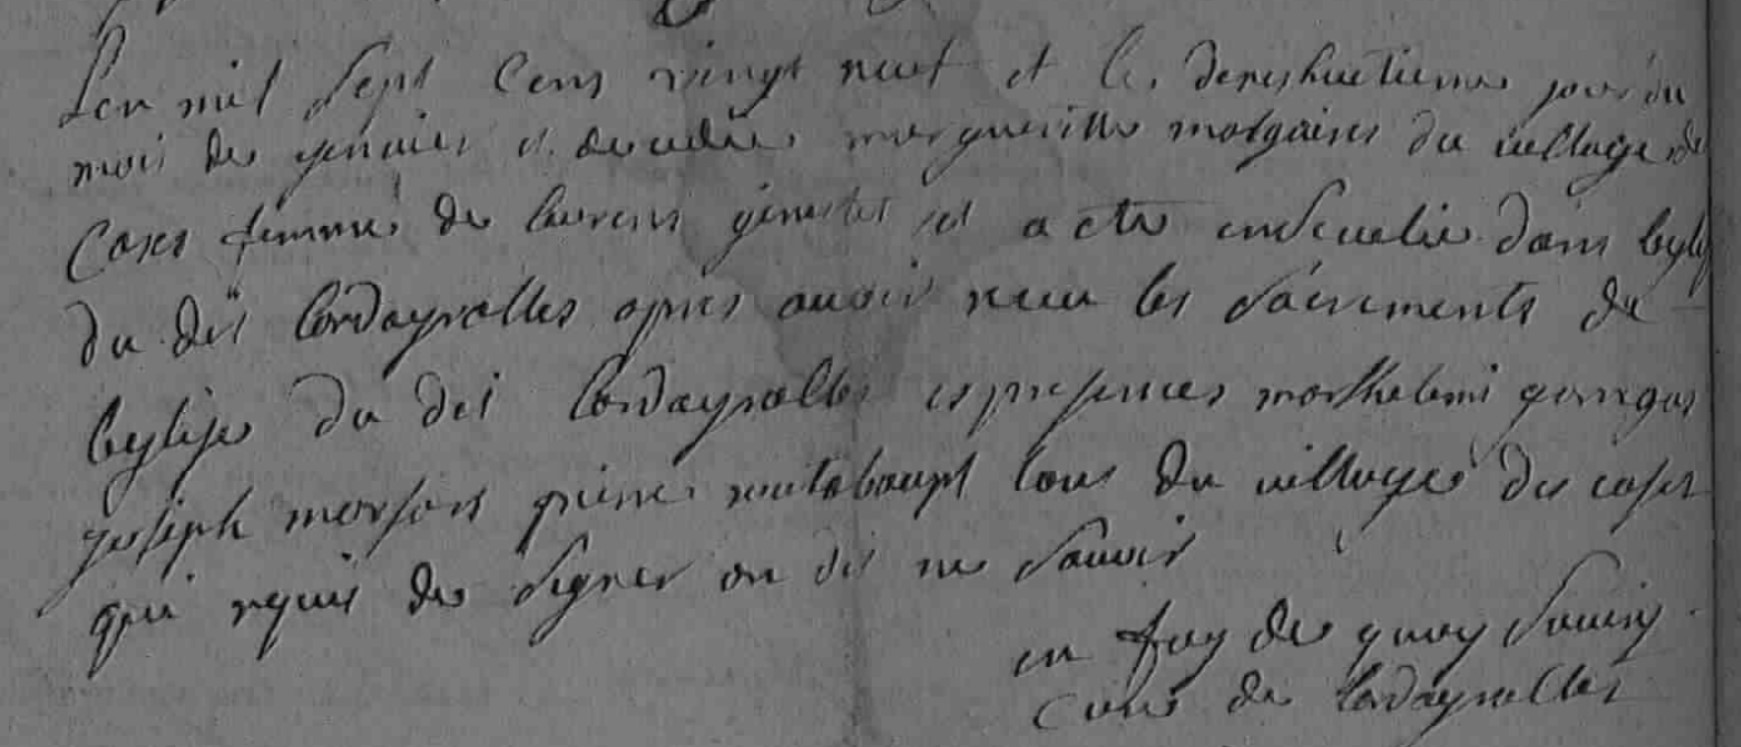 Lan mil sept cens vingt neuf et le dexshuitieme jour du
mois de genvier et decedée margueritte malgoires du village de
Cases femme de laurens genestes et a ete enseuelie dans leglise
du dit Cordayrolles apres auoir receu les sacrements de
leglise du dit Cordayrolles es presences
joseph pierre tous du village de cases
qui requis de signer on dit ne sauoir
en foy de quoy
Cure de Cordayrolles